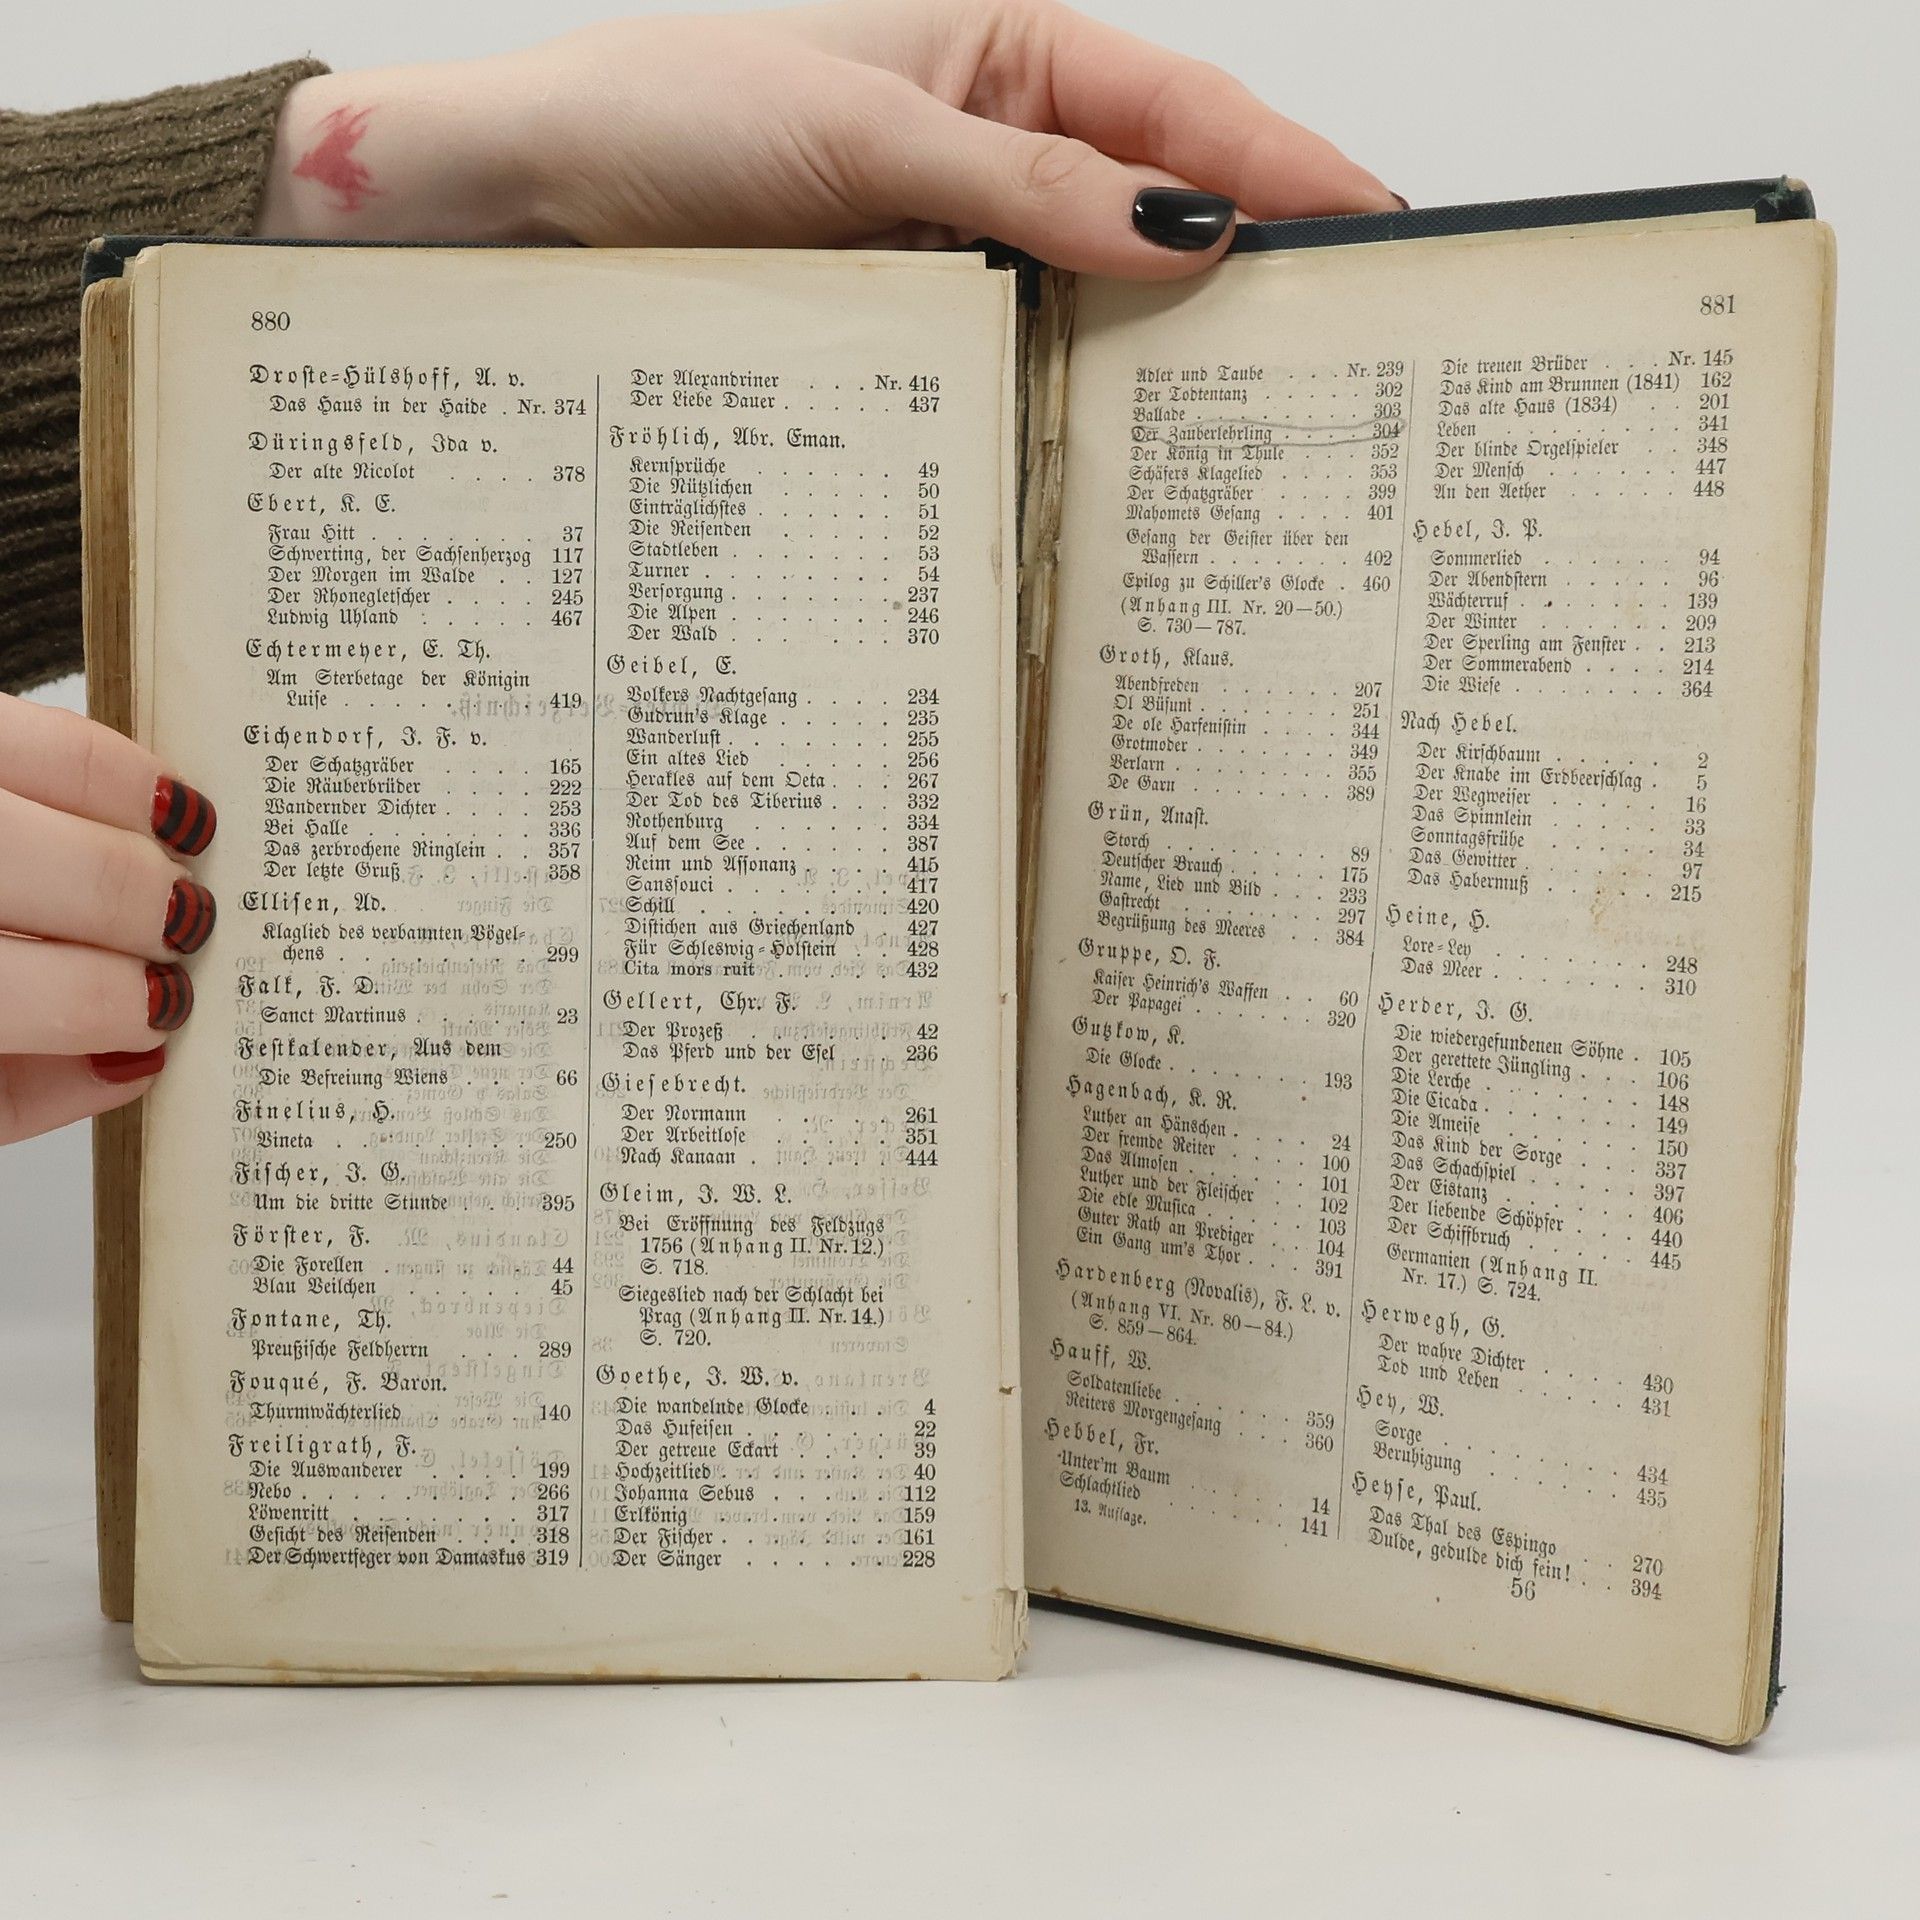 880
Droste-Hülshoff, A. v.
Das Haus in der Haide . Nr. 374
Düringsfeld, Ida v.
Der alte Nicolot . . . . 378
Ebert, K. E.
Frau Hitt . . . . . . . 37
Schwerting, der Sachsenherzog 117
Der Morgen im Walde . . 127
Der Rhonegletscher . . . . 245
Ludwig Uhland . . . . . 467
Echtermeyer, E. Th.
Am Sterbetage der Königin
Luise . . . . . . . . 419
Eichendorf, J. F. v.
Der Schatzgräber . . . . 165
Die Räuberbrüder . . . . 222
Wandernder Dichter . . . . 253
Bei Halle . . . . . . . 336
Das zerbrochene Ringlein . . 357
Der letzte Gruß . . . . . 358
Ellisen, Ad.
Klaglied des verbannten Vögel-
chens . . . . . . . . 299
Falk, F. D.
Sanct Martinus . . . . . 23
Festkalender, Aus dem
Die Befreiung Wiens . . . 66
Finelius, H.
Vineta . . . . . . . . 250
Fischer, J. G.
Um die dritte Stunde . . . 395
Förster, F.
Die Forellen . . . . . . 44
Blau Veilchen . . . . . 45
Fontane, Th.
Preußische Feldherrn . . . 289
Fouqué, F. Baron.
Thurmwächterlied . . . . 140
Freiligrath, F.
Die Auswanderer . . . . 199
Nebo . . . . . . . . . 266
Löwenritt . . . . . . . 317
Gesicht des Reisenden . . . 318
Der Schwertfeger von Damaskus 319
Der Alexandriner . . . Nr. 416
Der Liebe Dauer . . . . . 437
Fröhlich, Abr. Eman.
Kernsprüche . . . . . . 49
Die Nützlichen . . . . . 50
Einträglichstes . . . . . . 51
Die Reisenden . . . . . 52
Stadtleben . . . . . . . 53
Turner . . . . . . . . 54
Versorgung . . . . . . . 237
Die Alpen . . . . . . . 246
Der Wald . . . . . . . 370
Geibel, E.
Volkers Nachtgesang . . . . 234
Gudrun's Klage . . . . . 235
Wanderlust . . . . . . . 255
Ein altes Lied . . . . . 256
Herakles auf dem Oeta . . . 267
Der Tod des Tiberius . . . 332
Rothenburg . . . . . . 334
Auf dem See . . . . . . 387
Reim und Assonanz . . . . 415
Sanssouci . . . . . . . 417
Schill . . . . . . . . 420
Distichen aus Griechenland . 427
Für Schleswig-Holstein . . 428
Cita mors ruit . . . . . 432
Gellert, Chr. F.
Der Prozeß . . . . . . 42
Das Pferd und der Esel . . 236
Giesebrecht.
Der Normann . . . . . 261
Der Arbeitlose . . . . . 351
Nach Kanaan . . . . . . 444
Gleim, J. W. L.
Bei Eröffnung des Feldzugs
1756 (Anhang II. Nr. 12.)
S. 718.
Siegeslied nach der Schlacht bei
Prag (Anhang II. Nr. 14.)
S. 720.
Goethe, J. W. v.
Die wandelnde Glocke . . . 4
Das Hufeisen . . . . . . 22
Der getreue Eckart . . . . 39
Hochzeitlied . . . . . . . 40
Johanna Sebus . . . . . 112
Erlkönig . . . . . . . 159
Der Fischer . . . . . . . 161
Der Sänger . . . . . . 228
881
Adler und Taube . . . Nr. 239
Der Todtentanz . . . . . 302
Ballade . . . . . . . . 303
Der Zauberlehrling . . . . 304
Der König in Thule . . . 352
Schäfers Klagelied . . . . 353
Der Schatzgräber . . . . 399
Mahomets Gesang . . . . 401
Gesang der Geister über den
Wassern . . . . . . . 402
Epilog zu Schiller's Glocke . 460
(Anhang III. Nr. 20—50.)
S. 730—787.
Groth, Klaus.
Abendfreden . . . . . . 207
Ol Büsunt . . . . . . . 251
De ole Harfenistin . . . . 344
Grotmoder . . . . . . . 349
Verlarn . . . . . . . . 355
De Garn . . . . . . . 389
Grün, Anast.
Storch . . . . . . . . 89
Deutscher Brauch . . . . . 175
Name, Lied und Bild . . . 233
Gastrecht . . . . . . . 297
Begrüßung des Meeres . . 384
Gruppe, O. F.
Kaiser Heinrich's Waffen . . 60
Der Papagei . . . . . . 320
Gutzkow, K.
Die Glocke . . . . . . . 193
Hagenbach, K. R.
Luther an Hänschen . . . . 24
Der fremde Reiter . . . . 100
Das Almosen . . . . . . 101
Luther und der Fleischer . . 102
Die edle Musica . . . . . 103
Guter Rath an Prediger . . 104
Ein Gang um's Thor . . . 391
Hardenberg (Novalis), F. L. v.
(Anhang VI. Nr. 80—84.)
S. 859—864.
Hauff, W.
Soldatenliebe . . . . . . 359
Reiters Morgengesang . . . 360
Hebbel, Fr.
Unter'm Baum . . . . . 14
Schlachtlied . . . . . . 141
13. Auflage.
Die treuen Brüder . . . Nr. 145
Das Kind am Brunnen (1841) 162
Das alte Haus (1834) . . 201
Leben . . . . . . . . 341
Der blinde Orgelspieler . . 348
Der Mensch . . . . . . 447
An den Aether . . . . . 448
Hebel, J. P.
Sommerlied . . . . . . 94
Der Abendstern . . . . . 96
Wächterruf . . . . . . . 139
Der Winter . . . . . . 209
Der Sperling am Fenster . . 213
Der Sommerabend . . . . 214
Die Wiese . . . . . . . 364
Nach Hebel.
Der Kirschbaum . . . . . 2
Der Knabe im Erdbeerschlag . 5
Der Wegweiser . . . . . 16
Das Spinnlein . . . . . 33
Sonntagsfrühe . . . . . 34
Das Gewitter . . . . . . 97
Das Habermuß . . . . . 215
Heine, H.
Lore-Ley . . . . . . . 248
Das Meer . . . . . . . 310
Herder, J. G.
Die wiedergefundenen Söhne . 105
Der gerettete Jüngling . . . 106
Die Lerche . . . . . . . 148
Die Cicada . . . . . . . 149
Die Ameise . . . . . . 150
Das Kind der Sorge . . . 337
Das Schachspiel . . . . . 397
Der Eistanz . . . . . . 406
Der liebende Schöpfer . . . 440
Der Schiffbruch . . . . . 445
Germanien (Anhang II.
Nr. 17.) S. 724.
Herwegh, G.
Der wahre Dichter . . . . 430
Tod und Leben . . . . . 431
Hey, W.
Sorge . . . . . . . . 434
Beruhigung . . . . . . 435
Heyse, Paul.
Das Thal des Espingo . . 270
Dulde, gedulde dich fein! . . 394
56